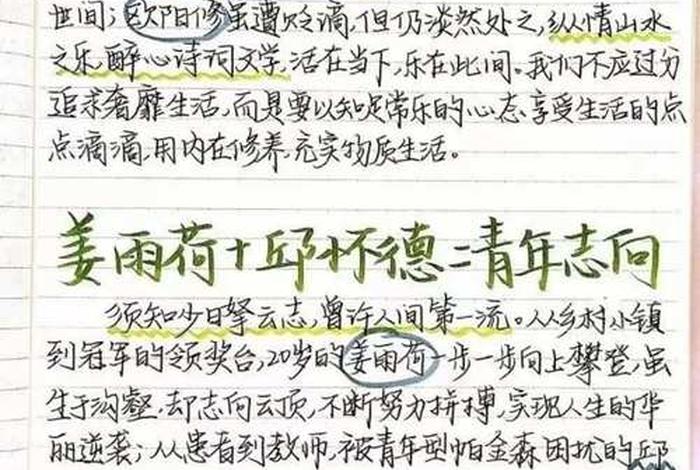 世间；欧阳修虽遭贬谪，但仍淡然处之，纵情山水
之乐，醉心诗词文学，活在当下，乐在此间。我们不应过分
追求奢靡生活，而是要以知足常乐的心态享受生活的点
点滴滴，用内在修养，充实物质生活。
姜雨荷+邱怀德=青年志向
须知少日拏云志，曾许人间第一流。从乡村小镇
到冠军的领奖台，20岁的姜雨荷一步一步向上攀登，虽
生于沟壑，却志向云顶，不断努力拼搏，实现人生的华
丽逆袭；从患者到教师，被青年型帕金森困扰的邱